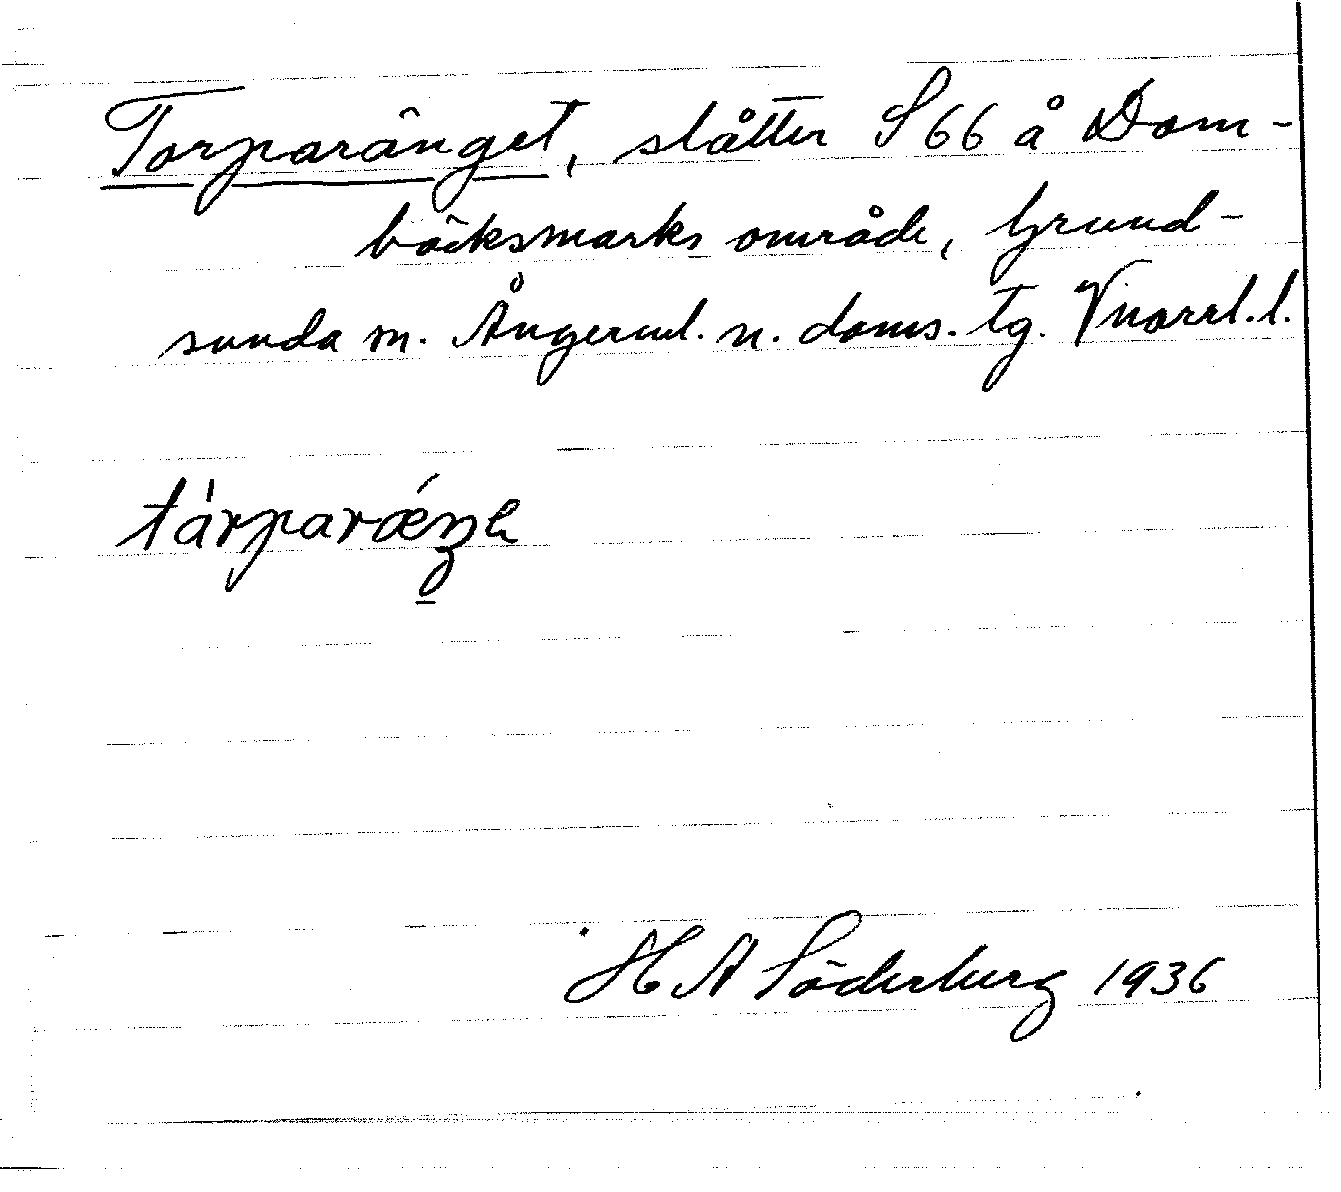 Torparänget, slåtter S 66 å Dom-
bäcksmarks område, Grund-
sunda sn. Ångerml. n. doms. tg. Vnorrl. l.
tárparǽŋe
H A Söderberg 1936